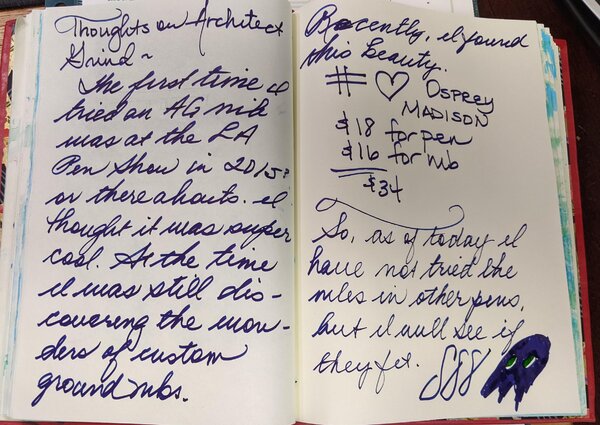 Thoughts on Architect
Grind~
The first time I
tried an AG nib
was at the LA
Pen Show in 2015?
or thereabouts. I
thought it was super
cool. At the time
I was still dis-
covering the won-
ders of custom
ground nibs.
Recently, I found
this beauty.
# ♡ OSPREY
MADISON
$18 for pen
$16 for nib
$34
So, as of today I
have not tried the
nibs in other pens,
but I will see if
they fit.